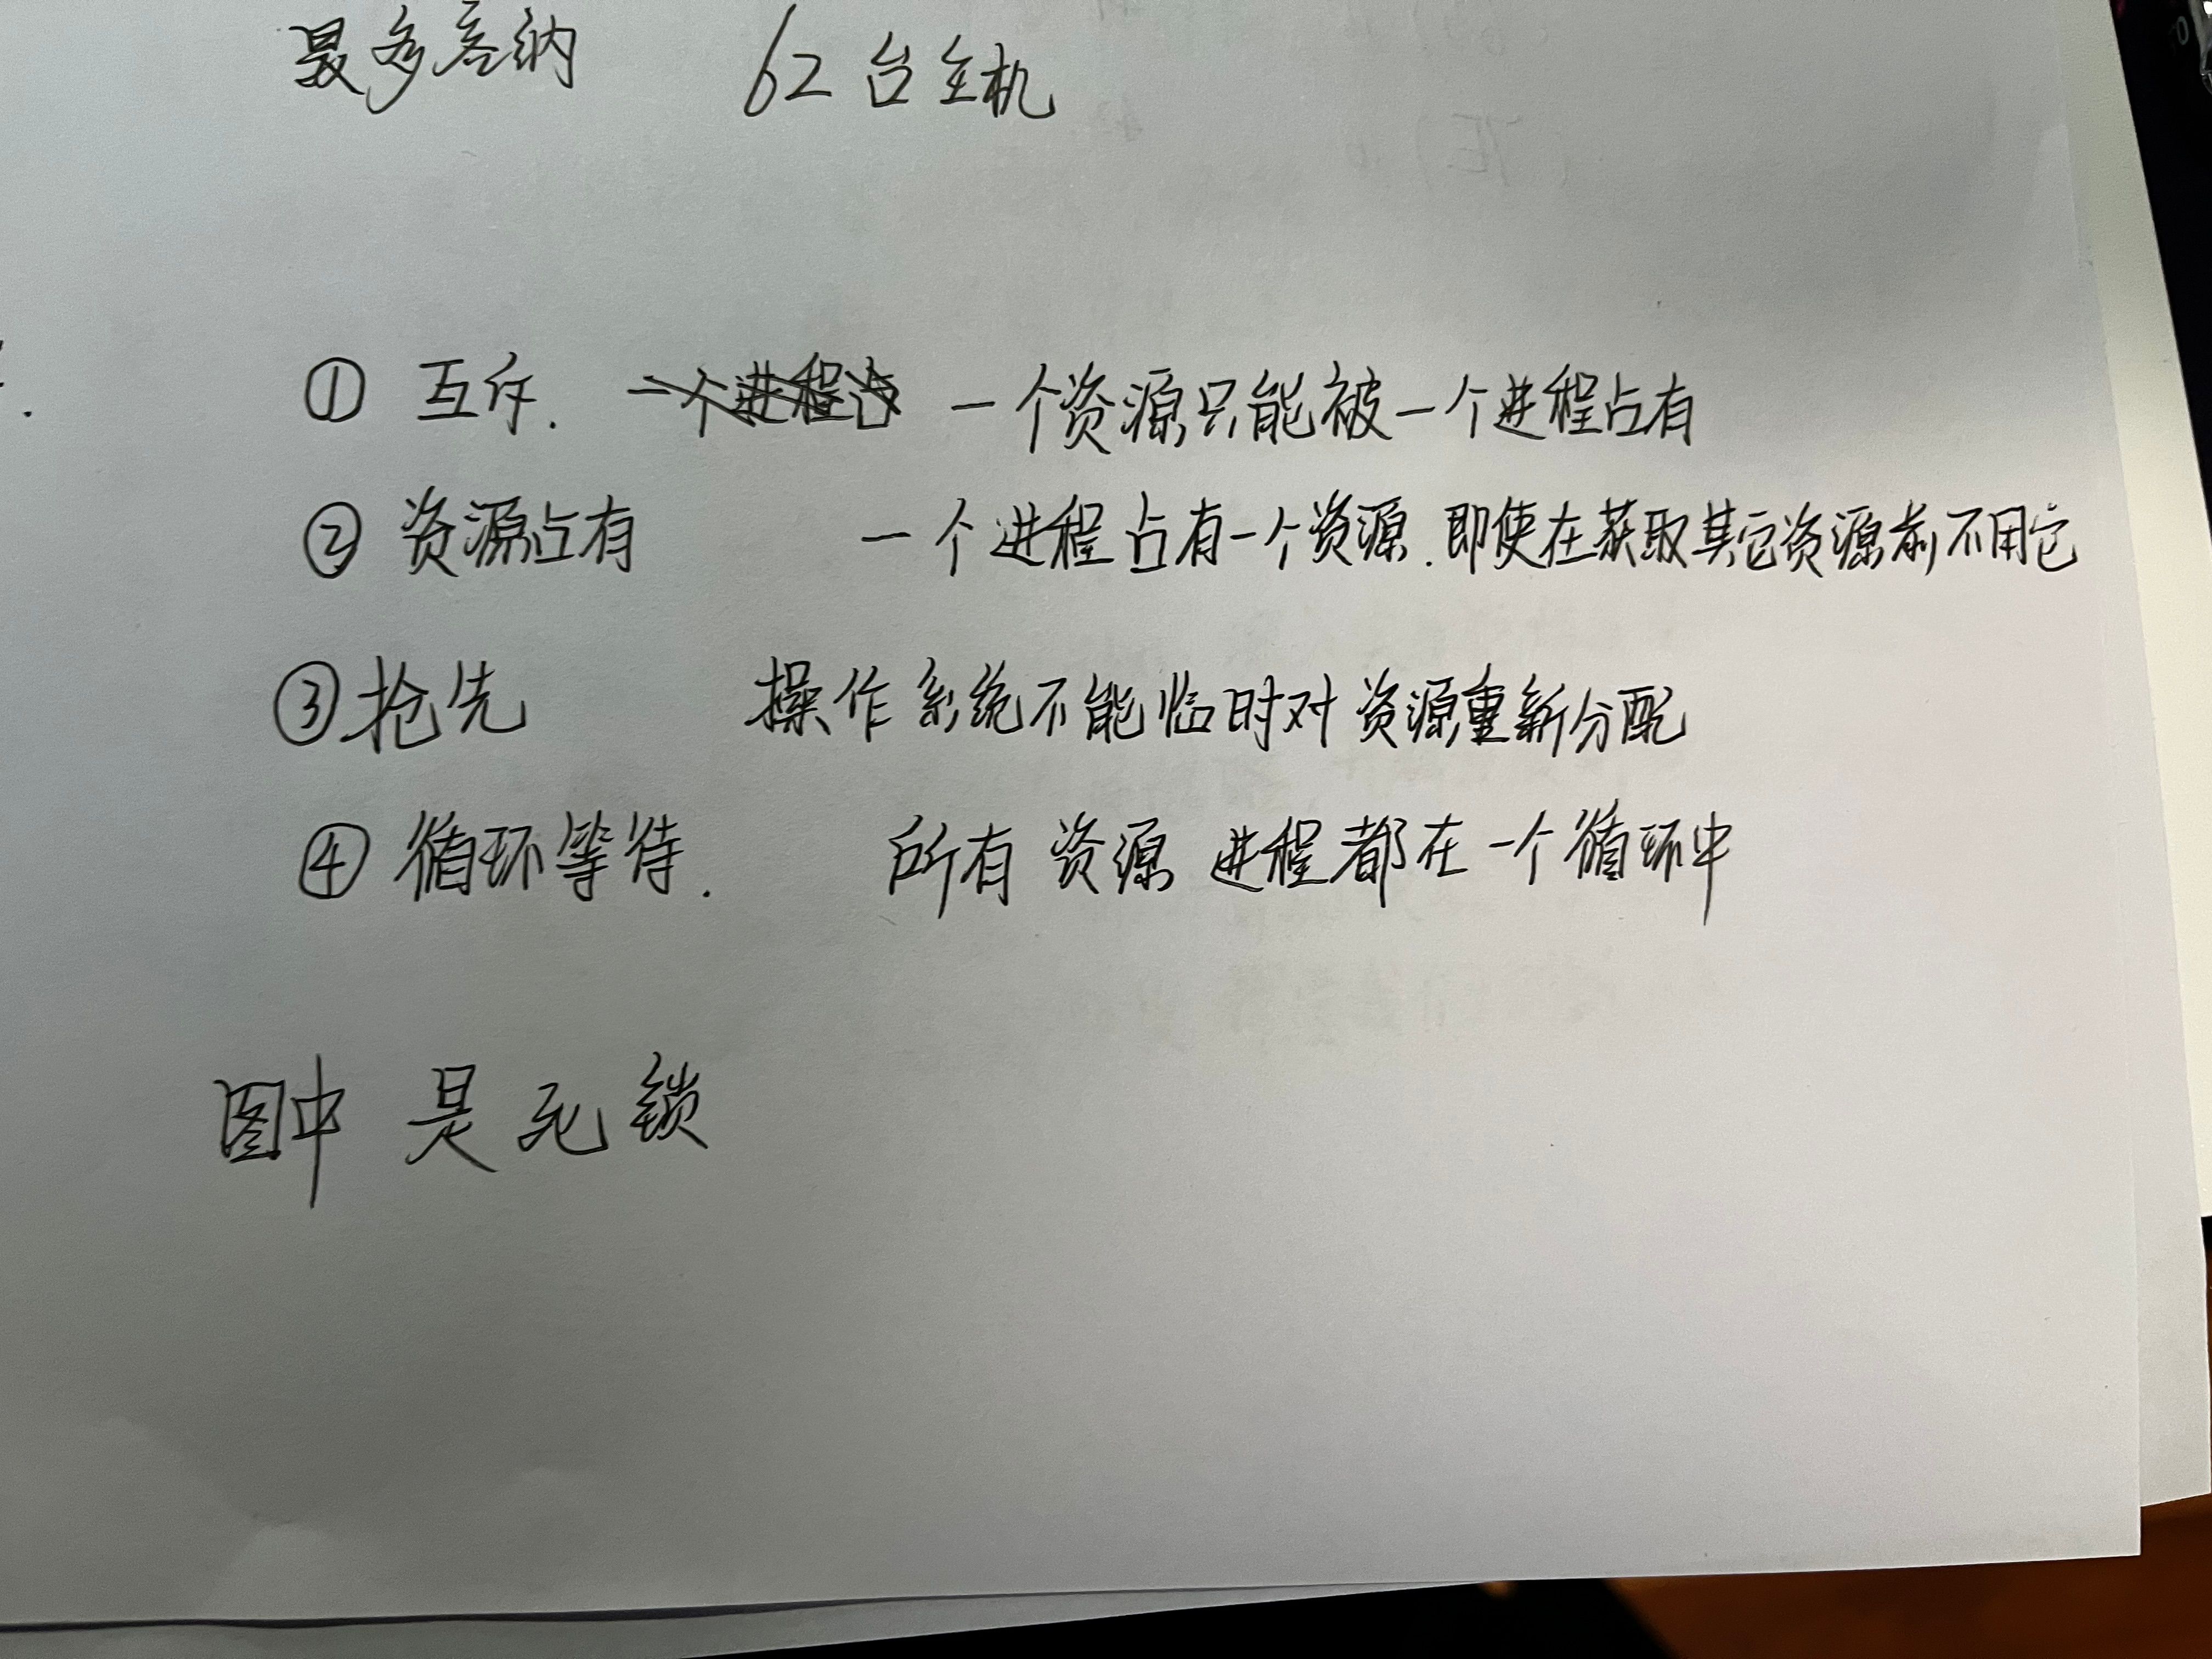 最多容纳 62台主机
① 互斥. 一个资源只能被一个进程占有
② 资源占有 一个进程占有一个资源.即使在获取其它资源前不用它
③ 抢先 操作系统不能临时对资源重新分配
④ 循环等待. 所有资源进程都在一个循环中
图中是死锁